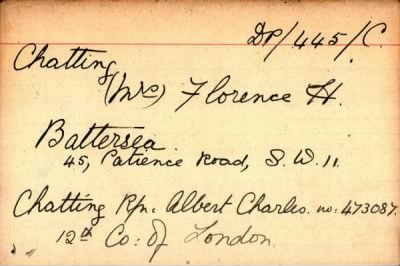 DP/445/C.
Chatting
(Mrs) Florence H.
Battersea.
45, Patience Road, S.W. 11.
Chatting Rfn: Albert Charles. no: 473087.
12th Co: of London.